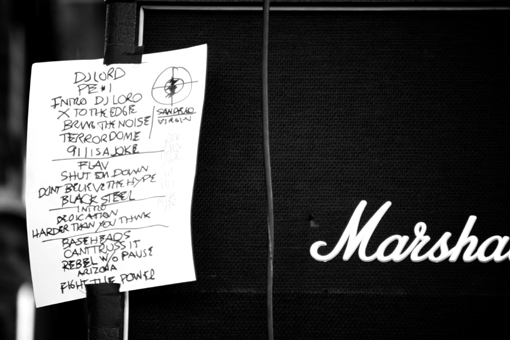 DJ LORD
PE #1
INTRO DJ LORD
X TO THE EDGE
BRING THE NOISE
TERRORDOME
911 IS A JOKE
FLAV
SHUT EM DOWN
DONT BELIEVE THE HYPE
BLACK STEEL
INTRO
DEDICATION
HARDER THAN YOU THINK
BASEHEADS
CANT TRUSS IT
REBEL W/O PAUSE
ARIZONA
FIGHT THE POWER
VIRGIN
Marsha